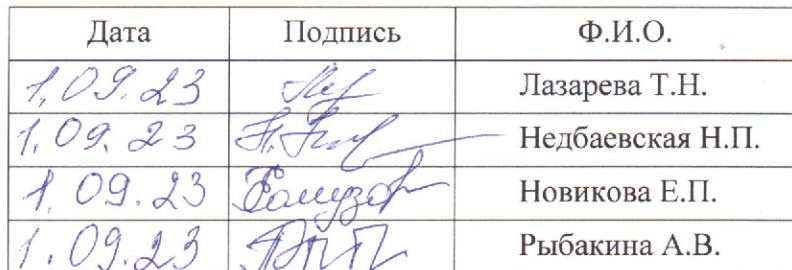 Дата Подпись Ф.И.О.
1.09.23 Лазарева Т.Н.
1.09.23 Недбаевская Н.П.
1.09.23 Новикова Е.П.
1.09.23 Рыбакина А.В.